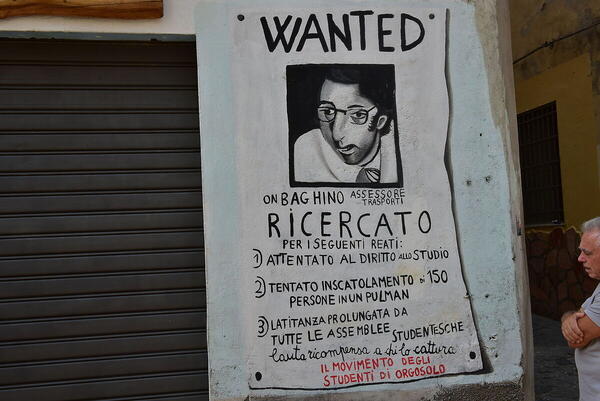 WANTED
ON BAGHINO ASSESSORE TRASPORTI
RICERCATO
PER I SEGUENTI REATI:
1) ATTENTATO AL DIRITTO ALLO STUDIO
2) TENTATO INSCATOLAMENTO DI 150
PERSONE IN UN PULMAN
3) LATITANZA PROLUNGATA DA
TUTTE LE ASSEMBLEE STUDENTESCHE
lauta ricompensa a chi lo cattura
IL MOVIMENTO DEGLI
STUDENTI DI ORGOSOLO